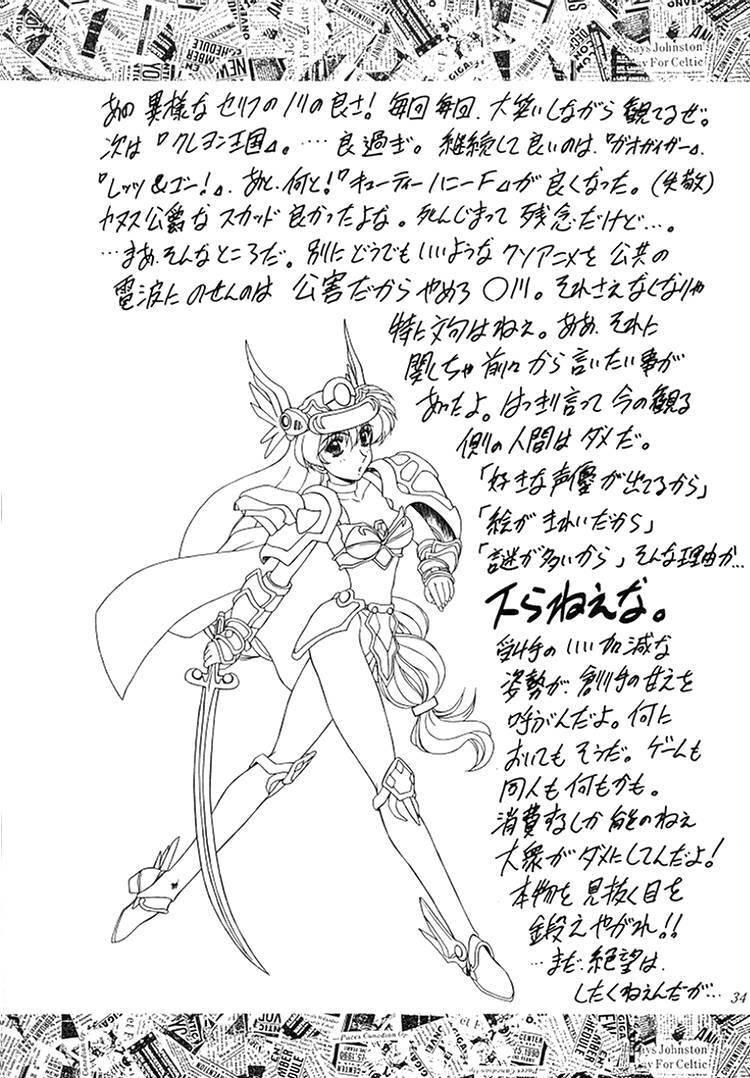 あの異様なセリフのノリの良さ！毎回毎回、大笑いしながら観てるぜ。
次は『クレヨン王国』。……良過ぎ。継続して良いのは、『ガオガイガー』、
『レッツ&ゴー！』、あと、何と！『キューティーハニーF』が良くなった。（失敬）
カヌス公爵なスカッド良かったよな。死んじまって残念だけど…。
…まあ、そんなところだ。別にどうでもいいようなクソアニメを公共の
電波にのせんのは公害だからやめろ〇川。それさえなくなりゃ
特に文句はねぇ。ああ、それに
関しちゃ前々から言いたい事が
あったよ。はっきり言って今の観る
側の人間はダメだ。
「好きな声優が出てるから」
「絵がきれいだから」
「謎が多いから」そんな理由か…
下らねえな。
受け手のいい加減な
姿勢が、創り手の甘えを
呼ぶんだよ。何に
おいてもそうだ。ゲームも
同人も何もかも。
消費するしか能のねぇ
大衆がダメにしてんだよ！
本物を見抜く目を
鍛えやがれ！！
…まだ、絶望は
したくねえんだが…
34
Says Johnston
Day For Celtic
Says Johnston
Day For Celtic